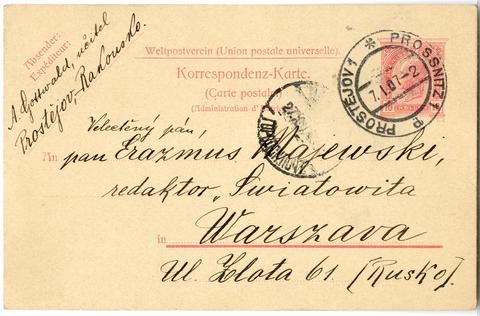 Absender:
Expéditeur:
A. Gottwald, učitel
Prostějov-Rakousko.
Weltpostverein (Union postale universelle).
Korrespondenz-Karte.
(Carte postale)
(Administration
PROSSNITZ 1
PROSTĚJOV 1
7.I.07-2
Velectěný pán,
An pan Erazmus Majewski,
redaktor „Światowita
in Warszava
Ul. Zlota 61. [Rusko].